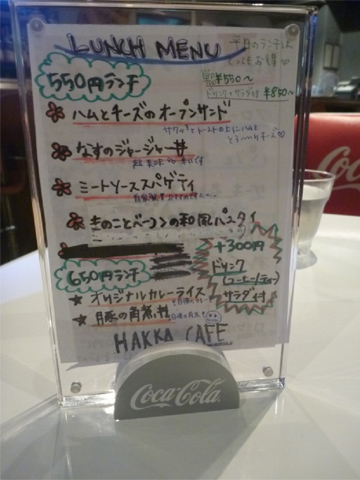 LUNCH MENU
平日のランチは
とってもお得
単品 ¥550〜
ドリンク・サラダ付 ¥850〜
550円ランチ
ハムとチーズのオープンサンド
なすのジャージャー丼
ミートソーススパゲティ
きのことベーコンの和風パスタ
+300円
ドリンク
(コーヒー/ティー)
サラダ付
650円ランチ
オリジナルカレーライス
豚の角煮丼
HAKKA CAFE
Coca-Cola
Coca